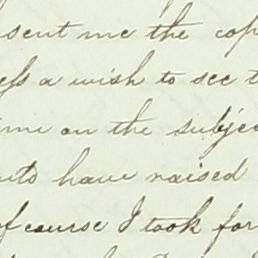 sent me the cop
ess a wish to see t
ime on the subjec
nts have raised
of course I took for